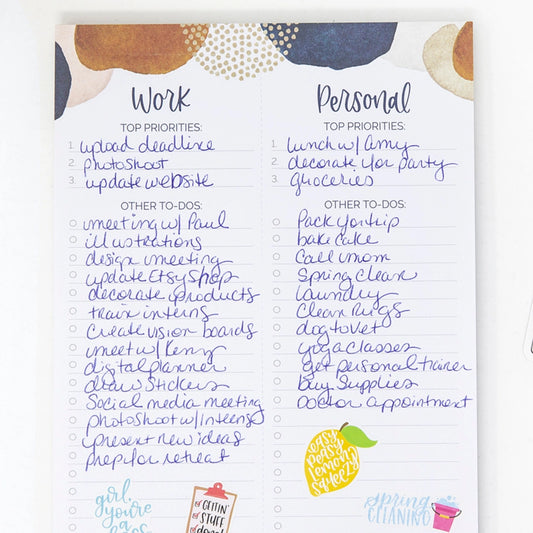 Work
TOP PRIORITIES:
1. upload deadline
2. photoshoot
3. update website
OTHER TO-DOS:
meeting w/ Paul
illustrations
design meeting
update Etsy Shop
decorate products
train interns
Create vision boards
meet w/ Kenny
digital planner
draw Stickers
Social media meeting
photoshoot w/ interns
present new ideas
prep for retreat
girl,
you're
a
boss
GETTIN'
STUFF
done!
Personal
TOP PRIORITIES:
1. lunch w/ Amy
2. decorate for party
3. groceries
OTHER TO-DOS:
Pack for trip
bake cake
Call mom
Spring Clean
laundry
Clean Rugs
dog to vet
yoga classes
get personal trainer
buy Supplies
Doctor appointment
easy
peasy
lemon
squeezy
spring
CLEANING